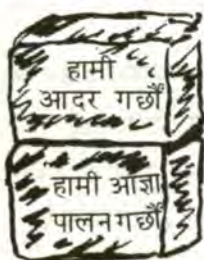 हामी
आदर गर्छौं
हामी आज्ञा
पालन गर्छौं